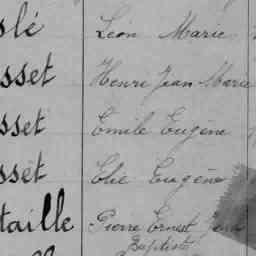 slé Léon Marie
sset Henri Jean Marie
sset Emile Eugène
sset Elie Eugène
taille Pierre Ernest Jean
Baptiste